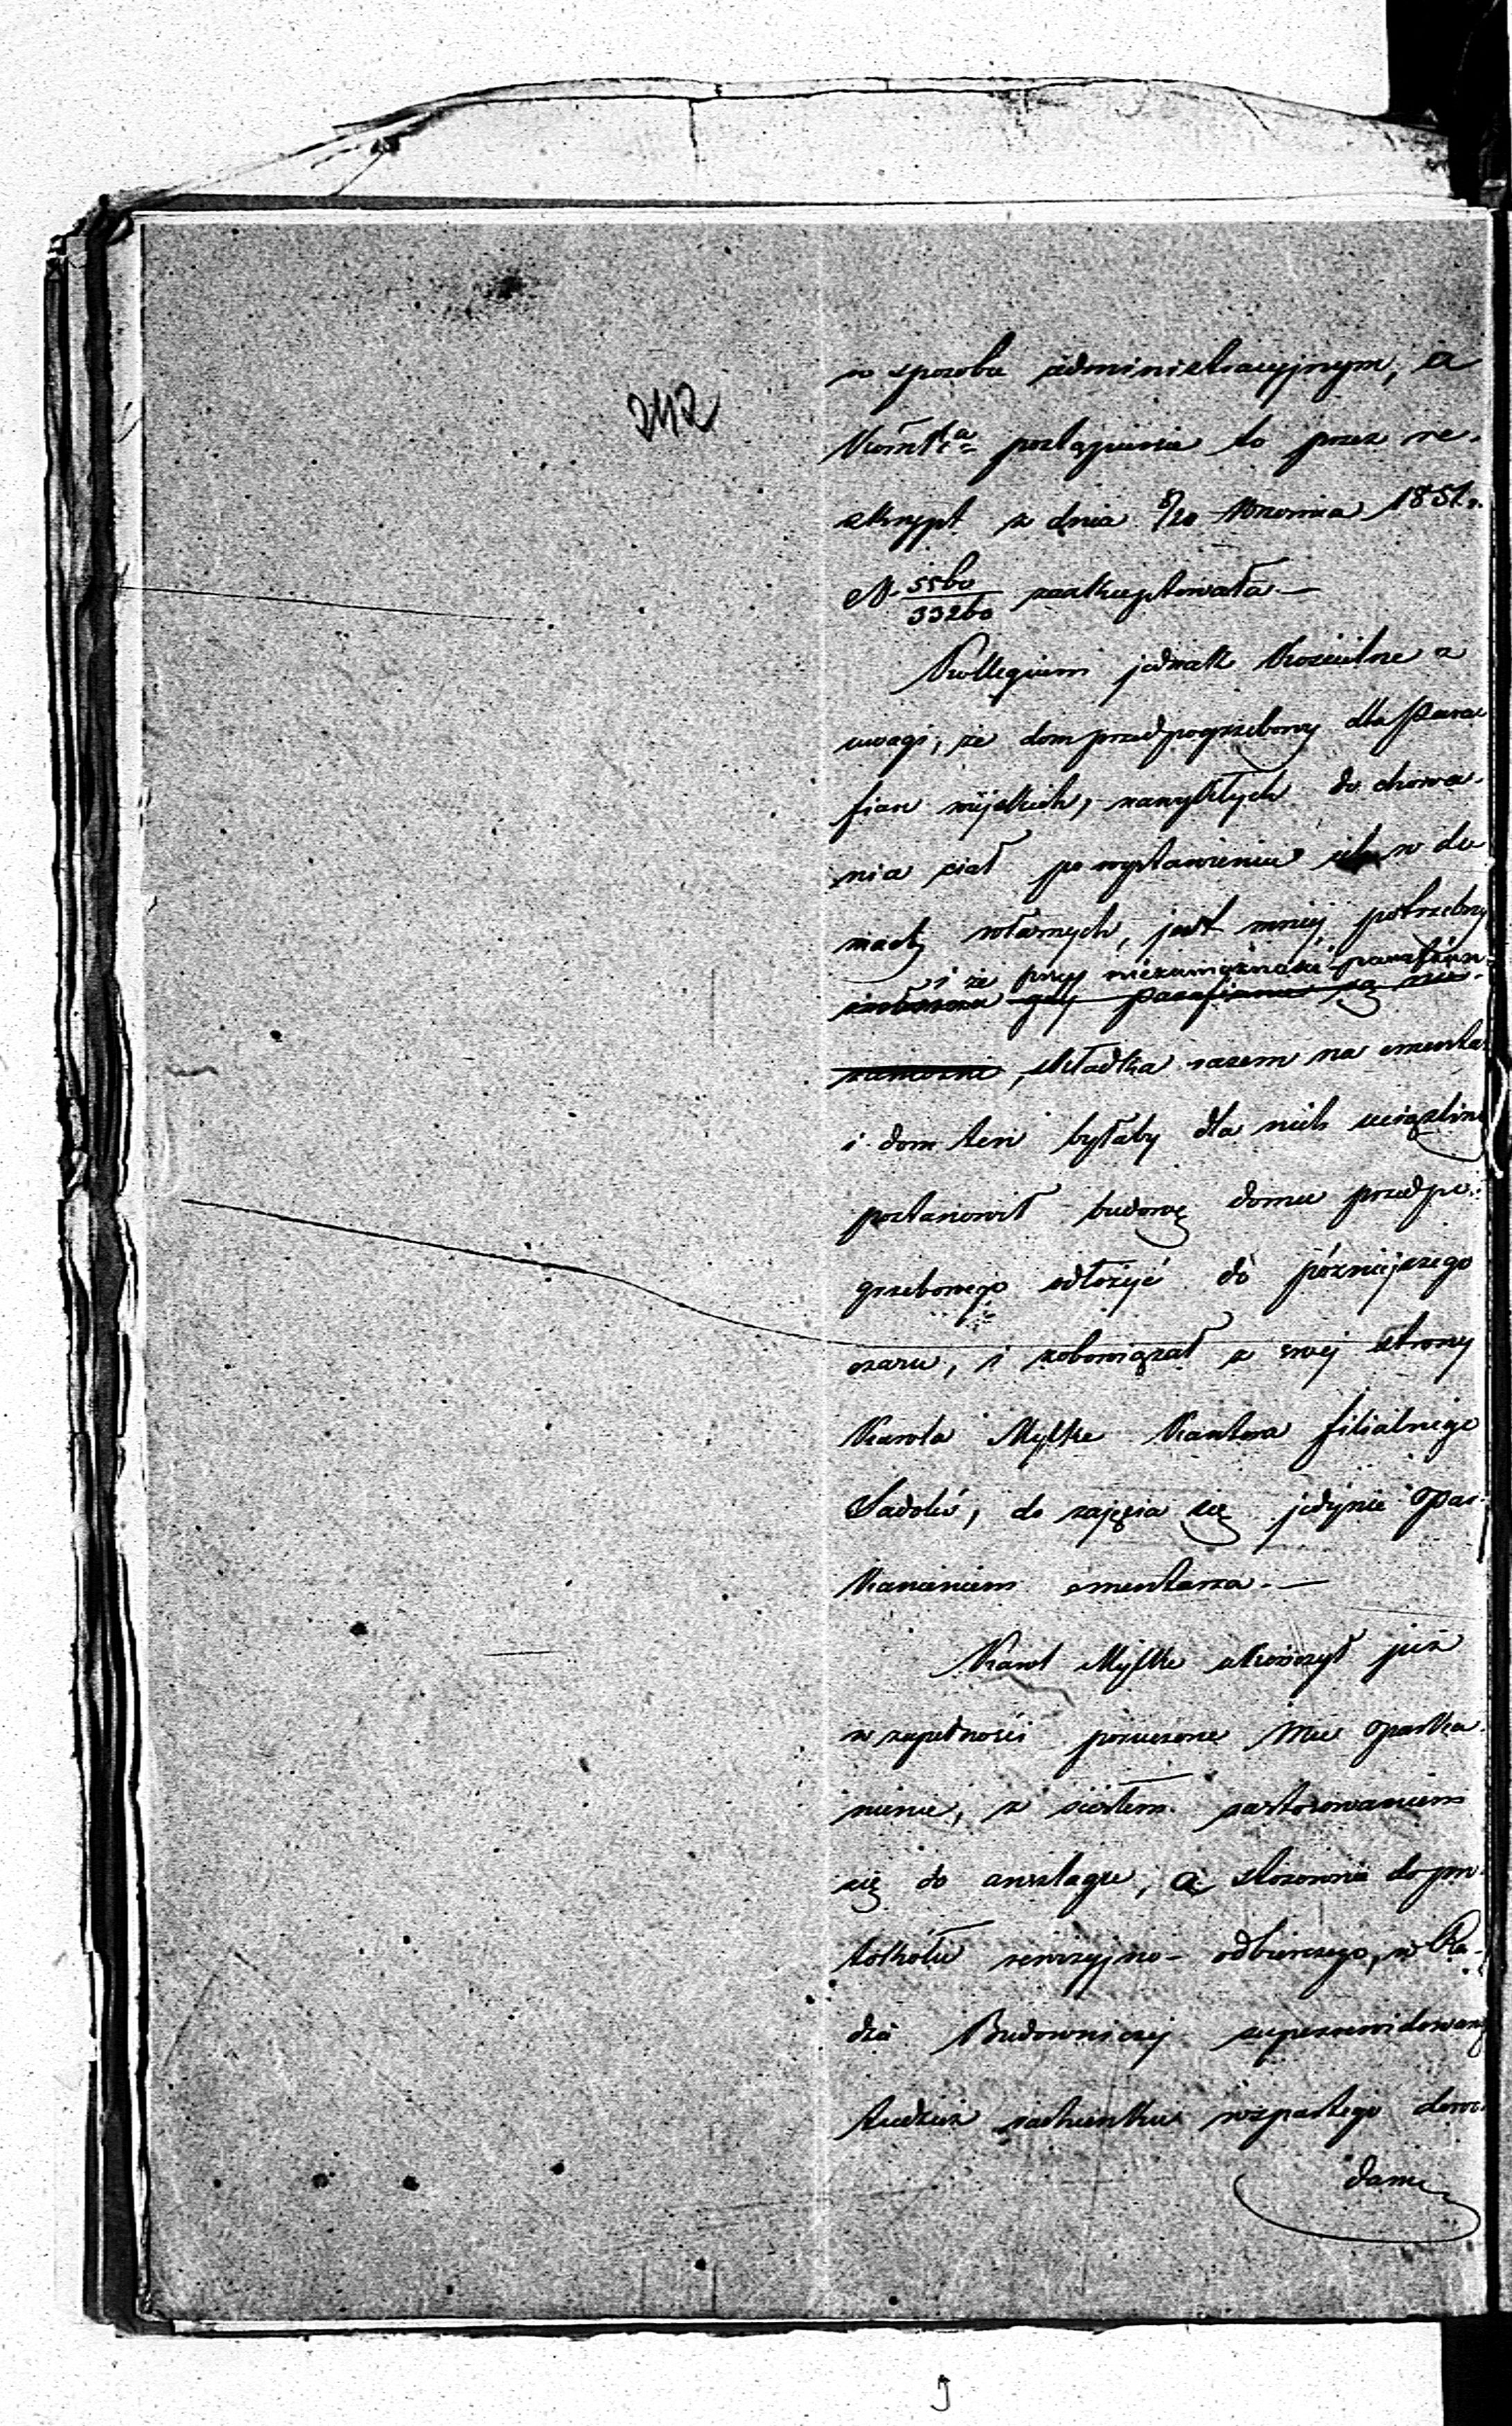 242
w sposobie administracyjnym, a
Kom̃tta postąpienie to przez re-
skrypt z dnia 8/20 Września 1851 r.
N. 5560/33260 zaakceptowała. —
Kollegium jednak Kościelne z
uwagi, że dom przedpogrzebowy dla Para-
fian wijskich, nawykłych do chowa-
nia ciał po wystawieniu ich w do-
mach własnych, jest mniej potrzebny
i że przy niezamożności parafian
gdy parafianie są nie-
zamożni, składka razem na cmentarz
i dom ten byłaby dla nich uciążliwą
postanowił budowę domu przedpo-
grzebowego odłożyć do późniejszego
czasu, i zobowiązał z swej strony
Karola Mylke Kantora filialnego
Sadoles, do zajęcia się jedynie opar-
kanieniem cmentarza. —
Karol Mylke ukończył już
w zupełności poruczone mu oparka-
nienie, z ścisłem zastosowaniem
się do anszlagu, a stosownie do pro-
tokółu rewizyjno-odbiorczego, w Ra-
dzie Budowniczej superrewidowanego
tudzież rachunku wspartego dowo-
dami